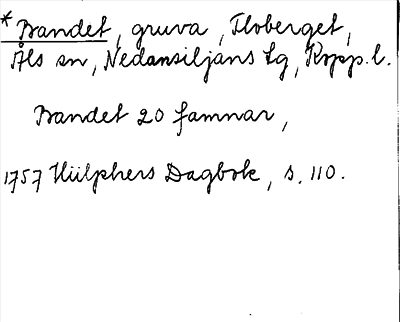 * Bandet, gruva, Floberget,
Åls sn, Nedansiljans tg, Kopp. l.
Bandet 20 famnar,
1757 Hülphers Dagbok, s. 110.